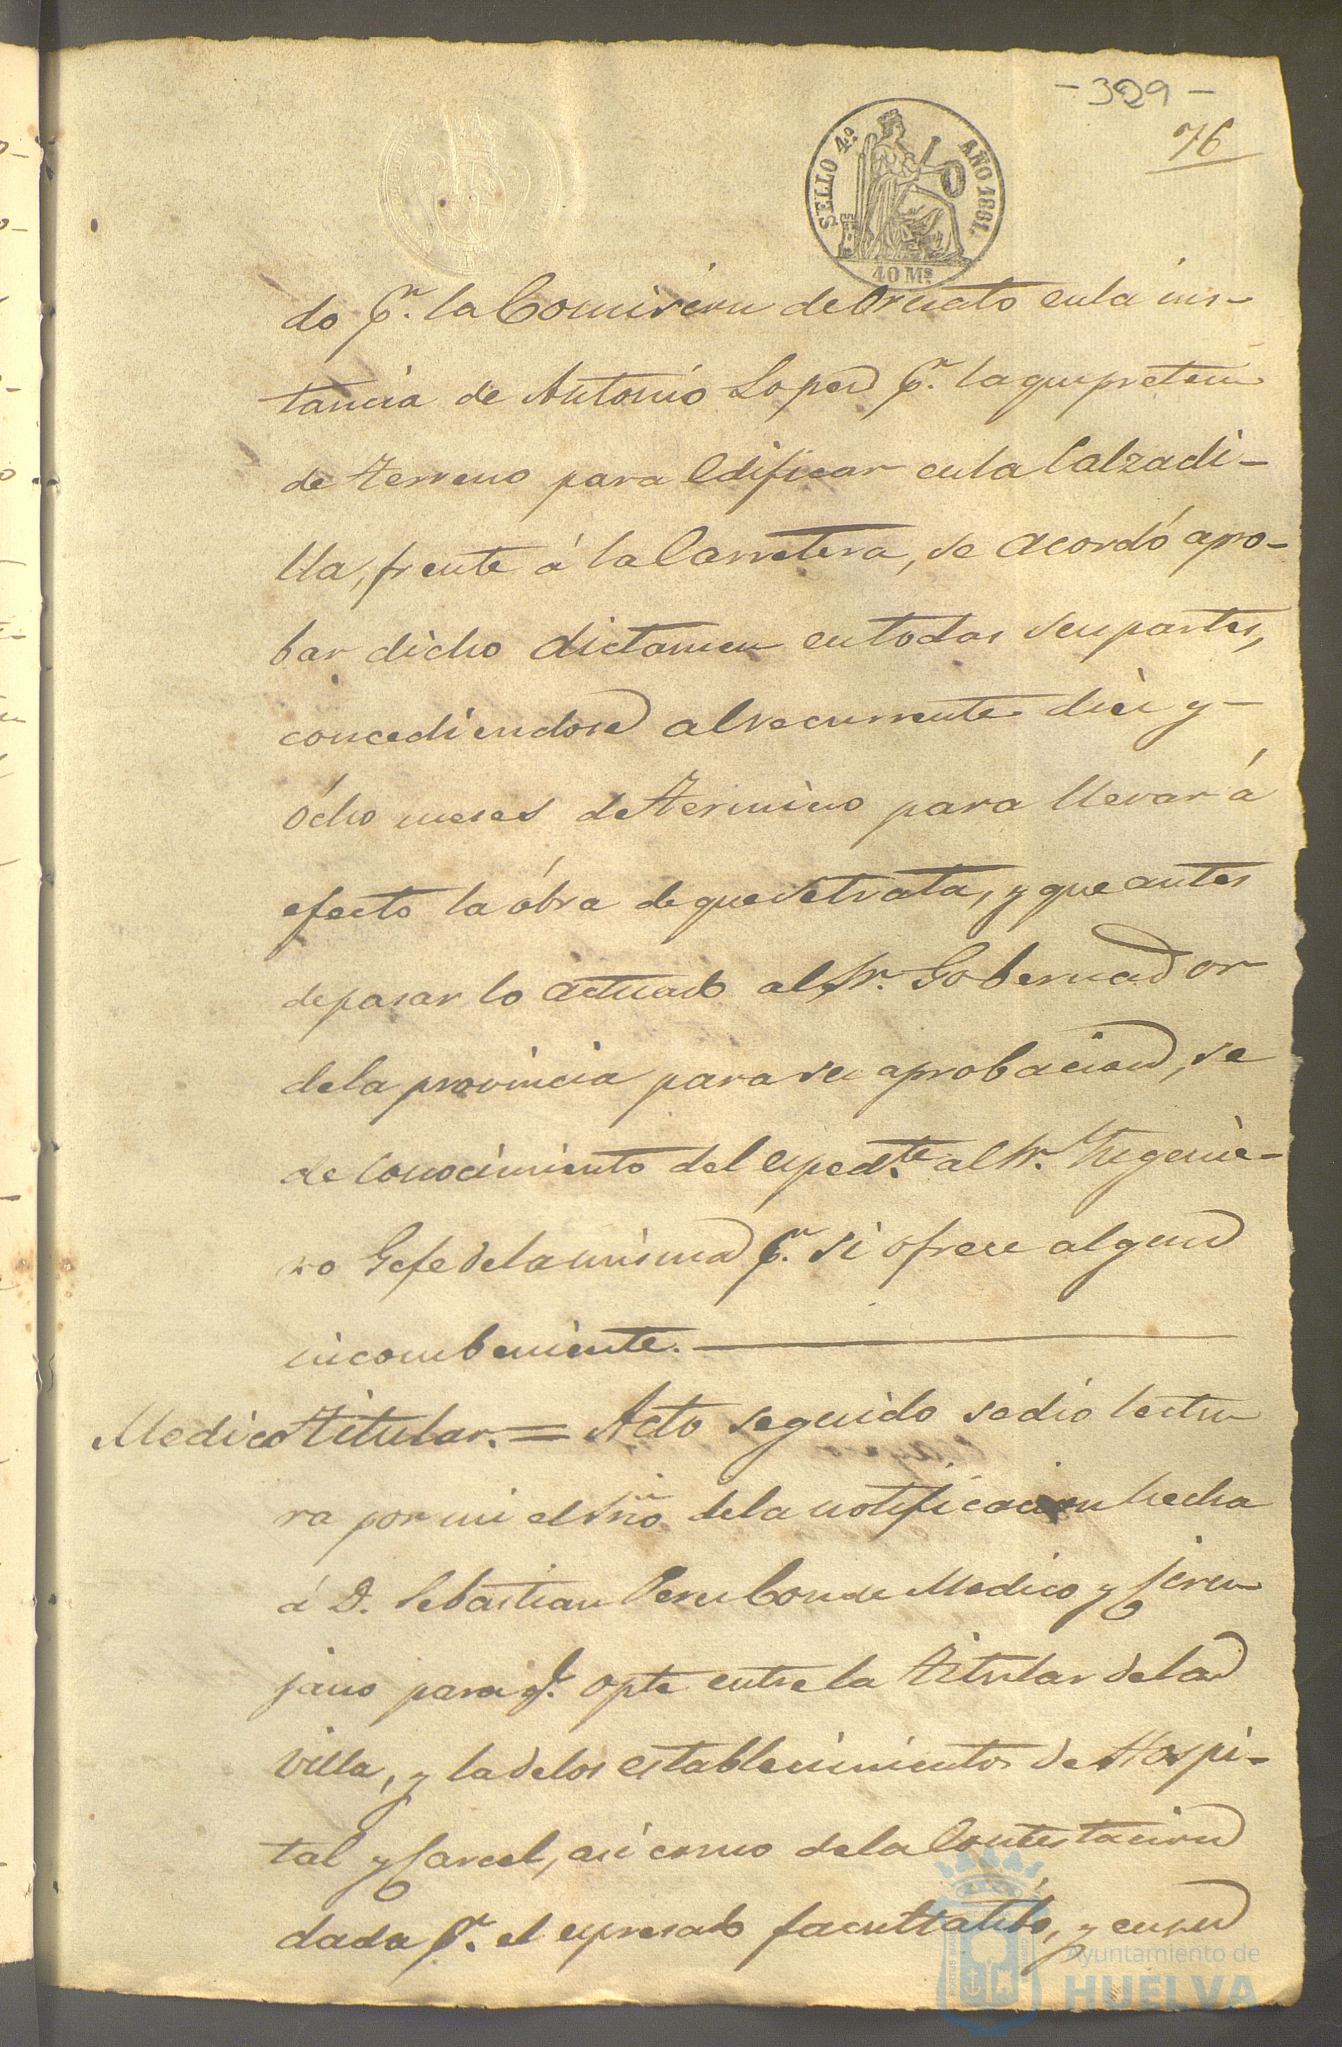 - 329 -
76
SELLO 4.º AÑO 1861.
40 Ms.
do p.r la Comision de Ornato en la ins-
tancia de Antonio Lopez p.r la que preten
de terreno para edificar en la Calzadi-
lla, frente á la Carretera, se acordó apro-
bar dicho dictamen en todas sus partes,
concediendose al recurrente diez y-
ócho meses de termino para llevar á
efecto la óbra de que se trata, y que antes
de pasar lo actuado al Sr. Gobernador
de la provincia para su aprobacion, se
de conocimiento del exped.te al Sr. Ingenie-
ro Gefe de la misma p.r si ofrece algun
incombeniente.
Medico titular. = Acto seguido se dió lectu
ra por mi el Srio de la notificacion hecha
á D. Sebastian Perez Conde Medico y Ciru
jano para q.e opte entre la titular de la
villa, y la de los establecimientos de Hospi-
tal y Carcel, asi como de la Contestacion
dada p.r el expresado facultatibo, y en su
Ayuntamiento de
HUELVA